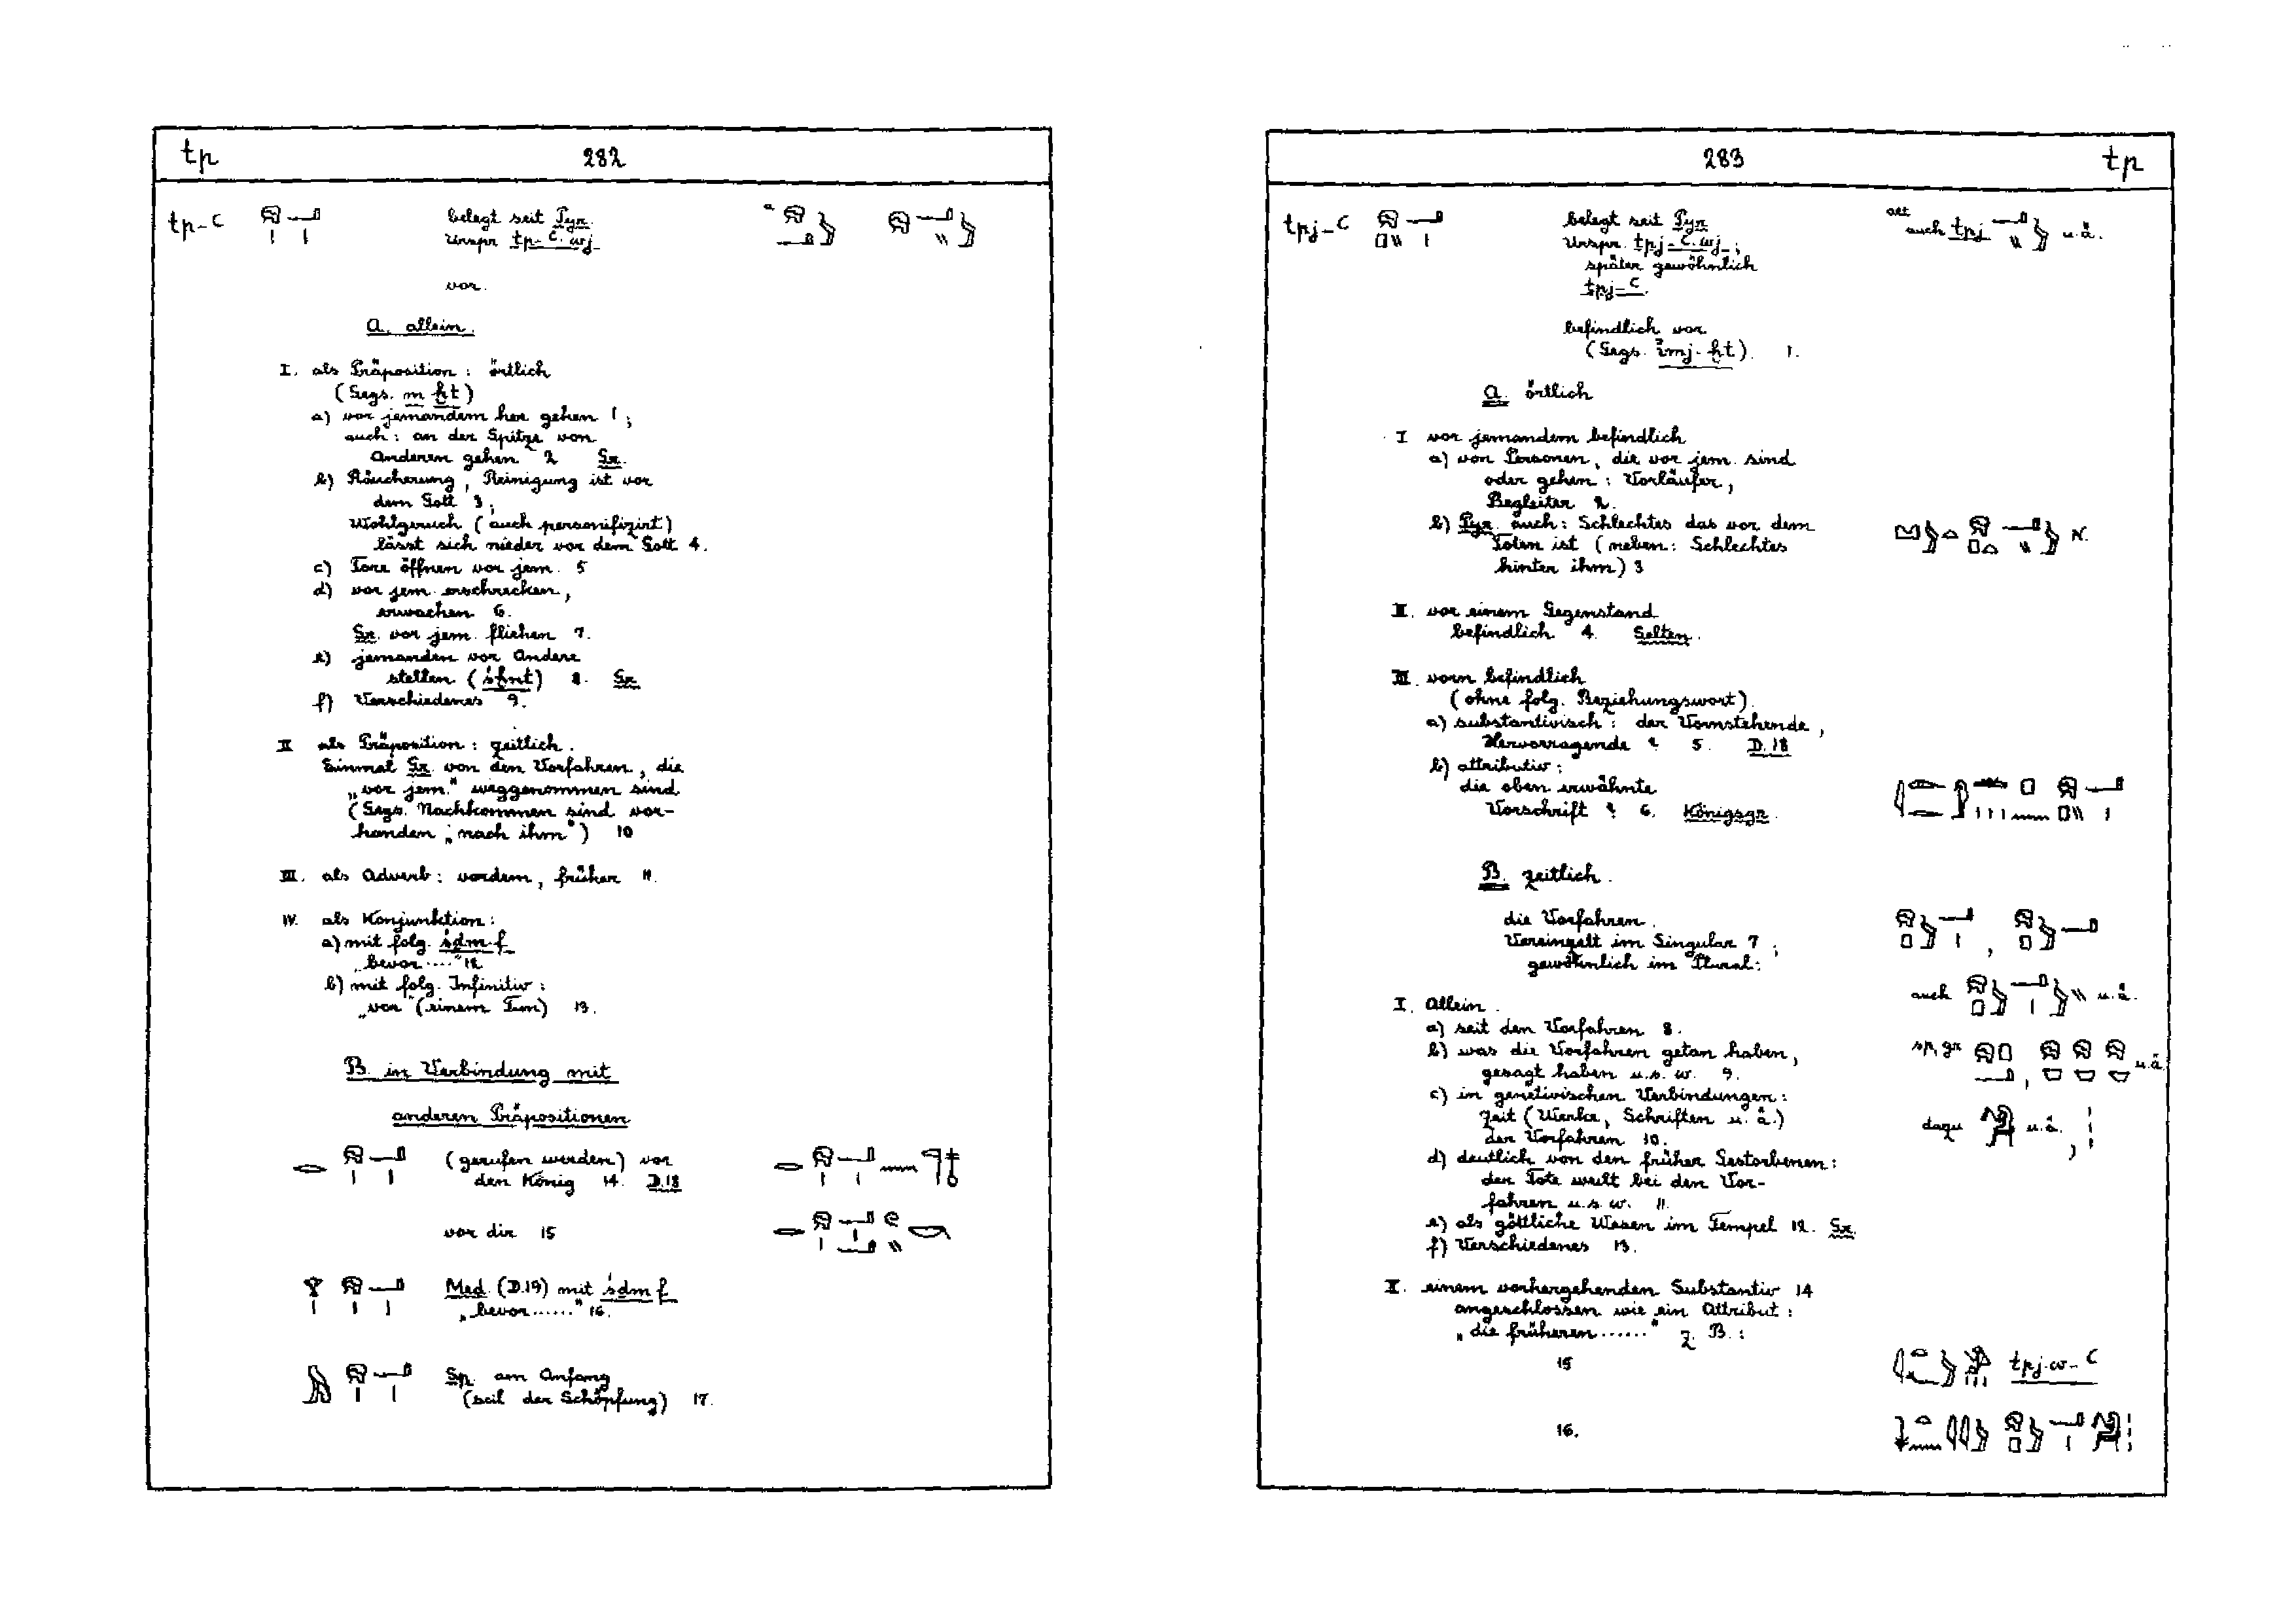 tp 282
tp-ꜥ
belegt seit Pyr.
Urspr. tp-ꜥ.wj
vor.
A. allein.
I. als Präposition: örtlich
(Gegs. m ḫt)
a) vor jemandem her gehen 1;
auch: an der Spitze von
Anderen gehen 2 Gr.
b) Räucherung, Reinigung ist vor
dem Gott 3;
Wohlgeruch (auch personifizirt)
lässt sich nieder vor dem Gott 4.
c) Tore öffnen vor jem. 5
d) vor jem. erschrecken,
erwachen 6.
Gr. vor jem. fliehen 7.
e) jemanden vor Andere
stellen (śḫnt) 8. Gr.
f) Verschiedenes 9.
II als Präposition: zeitlich.
Einmal Gr. von den Vorfahren, die
„vor jem." weggenommen sind
(Gegs. Nachkommen sind vor-
handen „nach ihm") 10
III. als Adverb: vordem, früher 11.
IV. als Konjunktion:
a) mit folg. śdm.f
„bevor ...." 12
b) mit folg. Infinitiv:
„vor" (einem Tun) 13.
B. in Verbindung mit
anderen Präpositionen
(gerufen werden) vor
den König 14. D.18
vor dir 15
Med. (D.19) mit śdm.f
„bevor ......" 16.
Sp. am Anfang
(seit der Schöpfung) 17.
283 tp
tpj-ꜥ
belegt seit Pyr.
Urspr. tpj-ꜥ.wj;
später gewöhnlich
tpj-ꜥ.
alt
auch tpj u.ä.
befindlich vor
(Gegs. imj-ḫt). 1.
A. örtlich
I vor jemandem befindlich
a) von Personen, die vor jem. sind
oder gehen: Vorläufer,
Begleiter 2.
b) Pyr. auch: Schlechtes das vor dem
Toten ist (neben: Schlechtes
hinter ihm) 3
N.
II. vor einem Gegenstand
befindlich 4. Selten.
III. vorn befindlich
(ohne folg. Beziehungswort).
a) substantivisch: der Vornstehende,
Hervorragende ? 5. D.18
b) attributiv:
die oben erwähnte
Vorschrift ? 6. Königsgr.
B. zeitlich.
die Vorfahren.
Vereinzelt im Singular 7;
gewöhnlich im Plural:
auch u.ä.
I. Allein.
a) seit den Vorfahren 8.
b) was die Vorfahren getan haben,
gesagt haben u.s.w. 9.
sp, gr u.ä.
c) in genetivischen Verbindungen:
Zeit (Werke, Schriften u.ä.)
der Vorfahren 10.
dazu u.ä.,
d) deutlich von den früher Gestorbenen:
der Tote weilt bei den Vor-
fahren u.s.w. 11.
e) als göttliche Wesen im Tempel 12. Gr.
f) Verschiedenes 13.
II. einem vorhergehenden Substantiv 14
angeschlossen wie ein Attribut:
„die früheren ......" z. B.:
15 tpj.w-ꜥ
16.